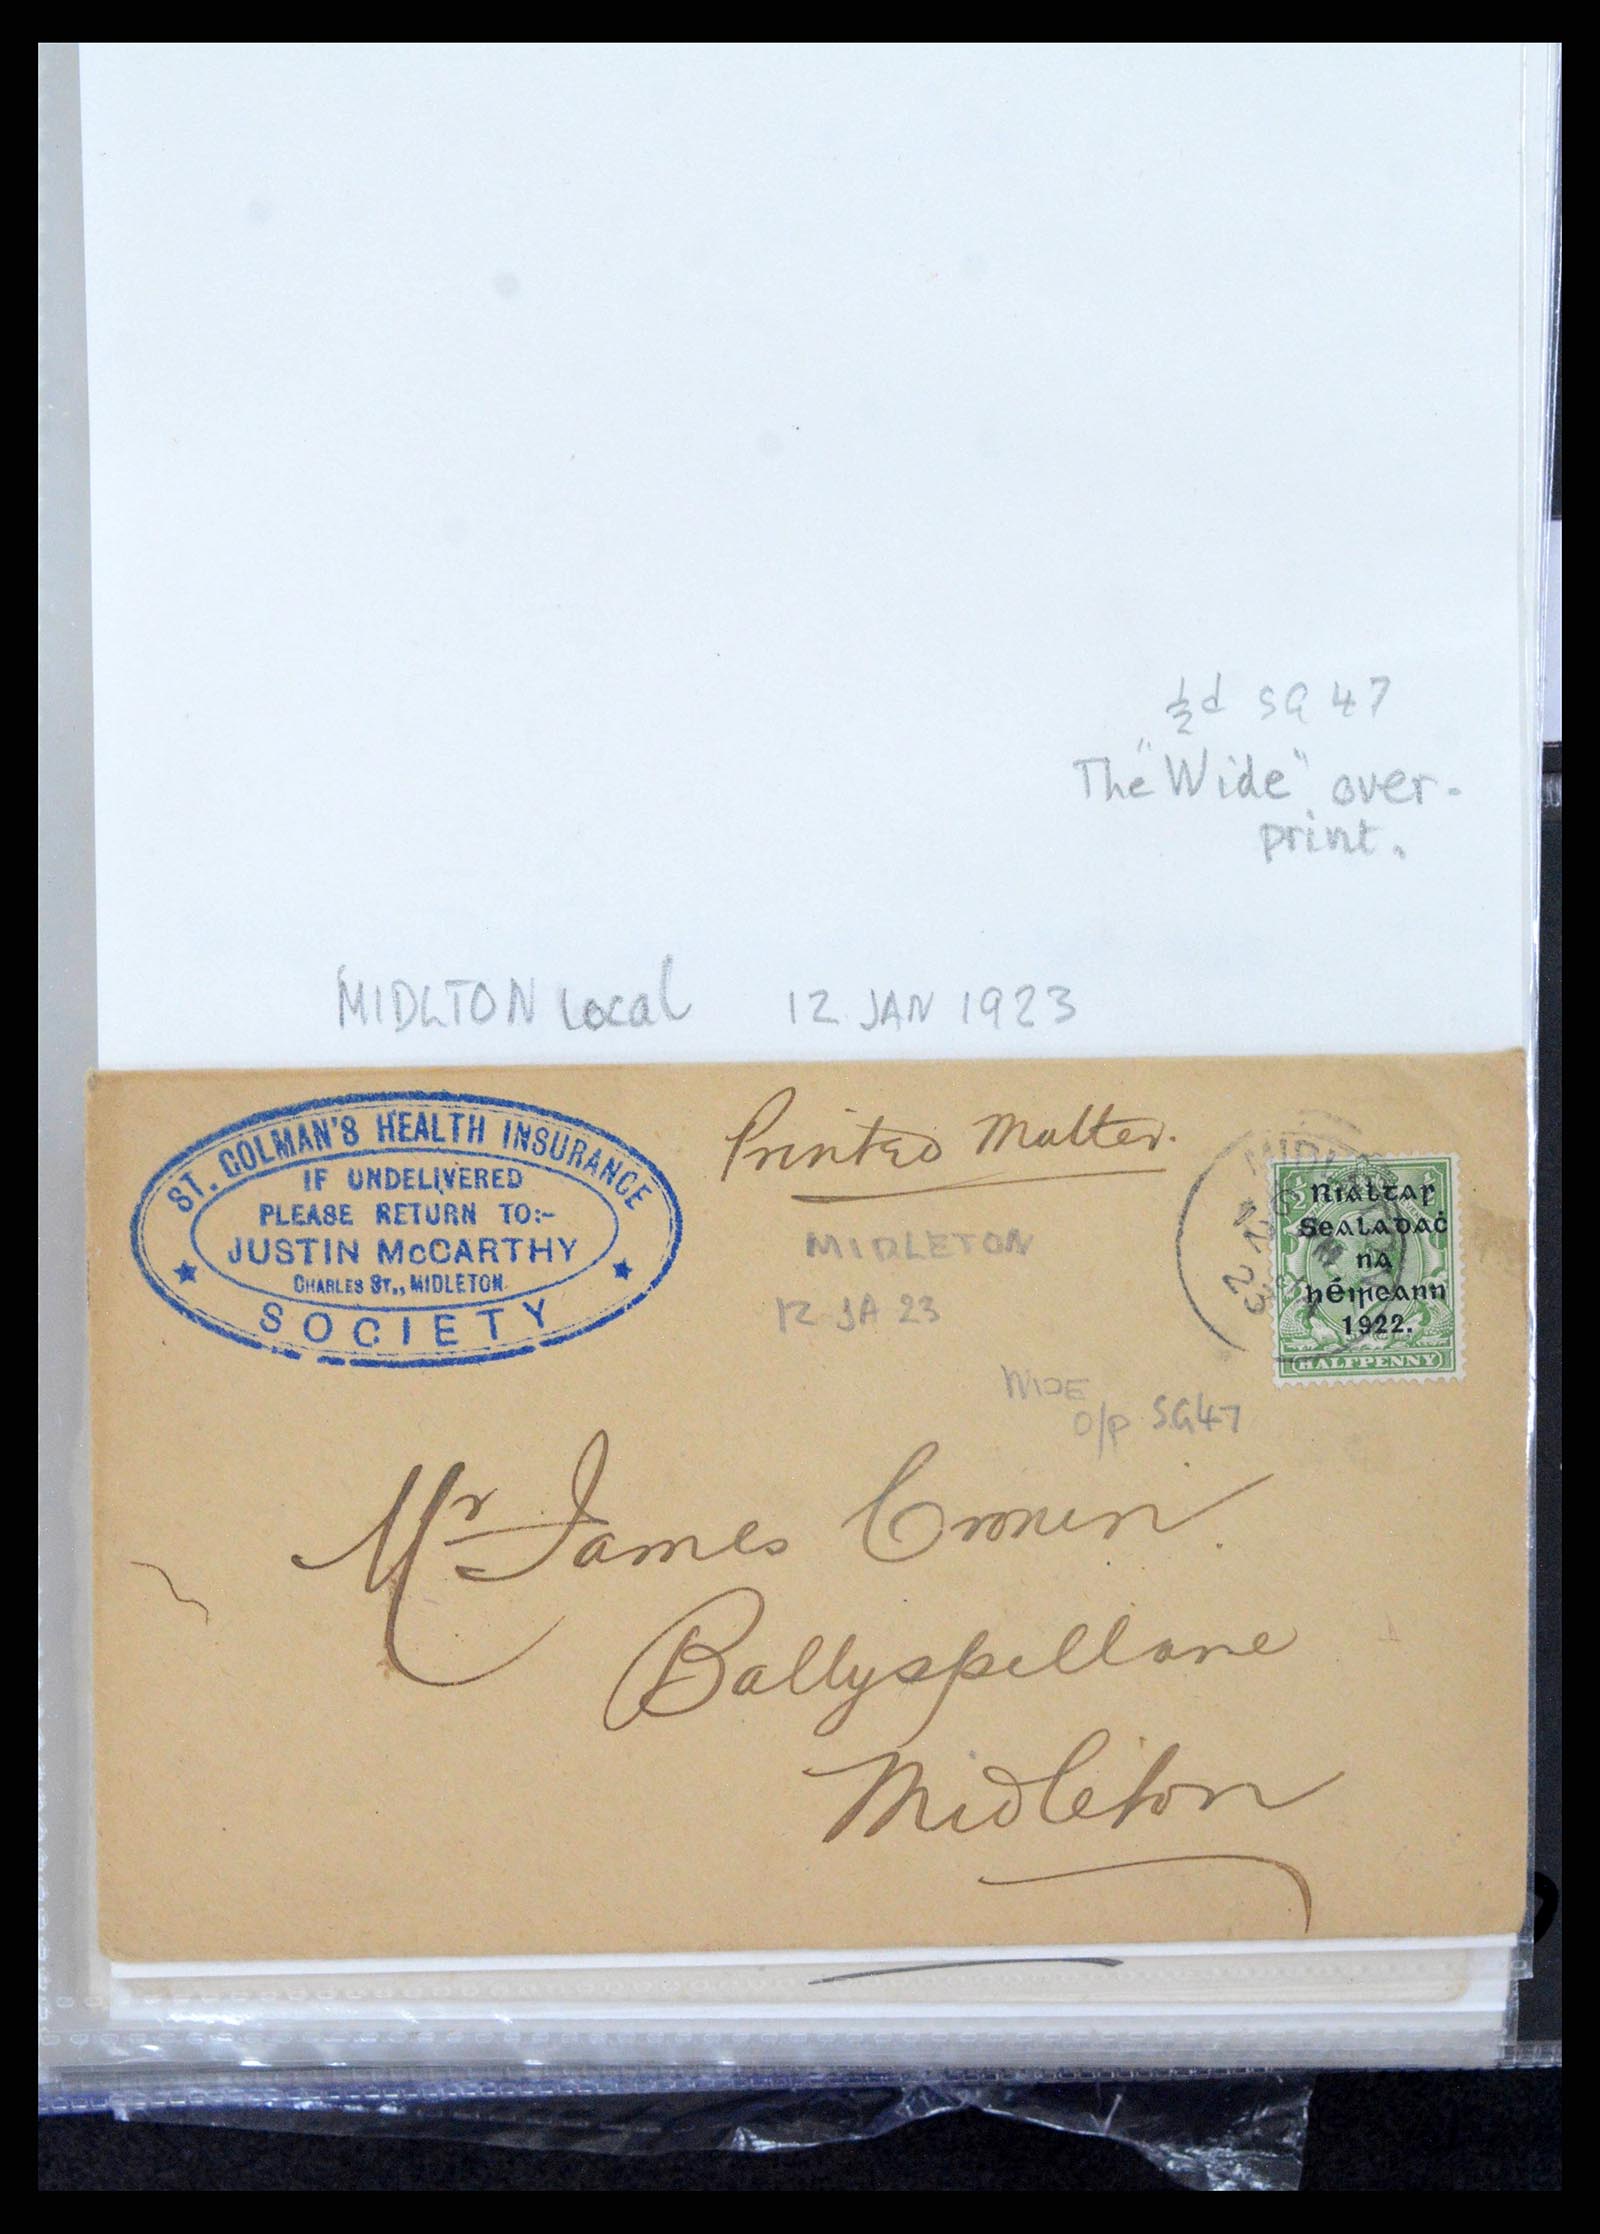 ½d SG 47
The "Wide" over-
print.
MIDLTON Local 12 JAN 1923
ST. COLMAN'S HEALTH INSURANCE
IF UNDELIVERED
PLEASE RETURN TO:-
JUSTIN McCARTHY
CHARLES ST., MIDLETON
SOCIETY
Printed Matter.
MIDLETON
12 JA 23
WIDE
O/P SG47
Rialtar
Sealadaċ
na
hÉireann
1922.
HALFPENNY
Mr James Cronin
Ballyspellane
Midleton